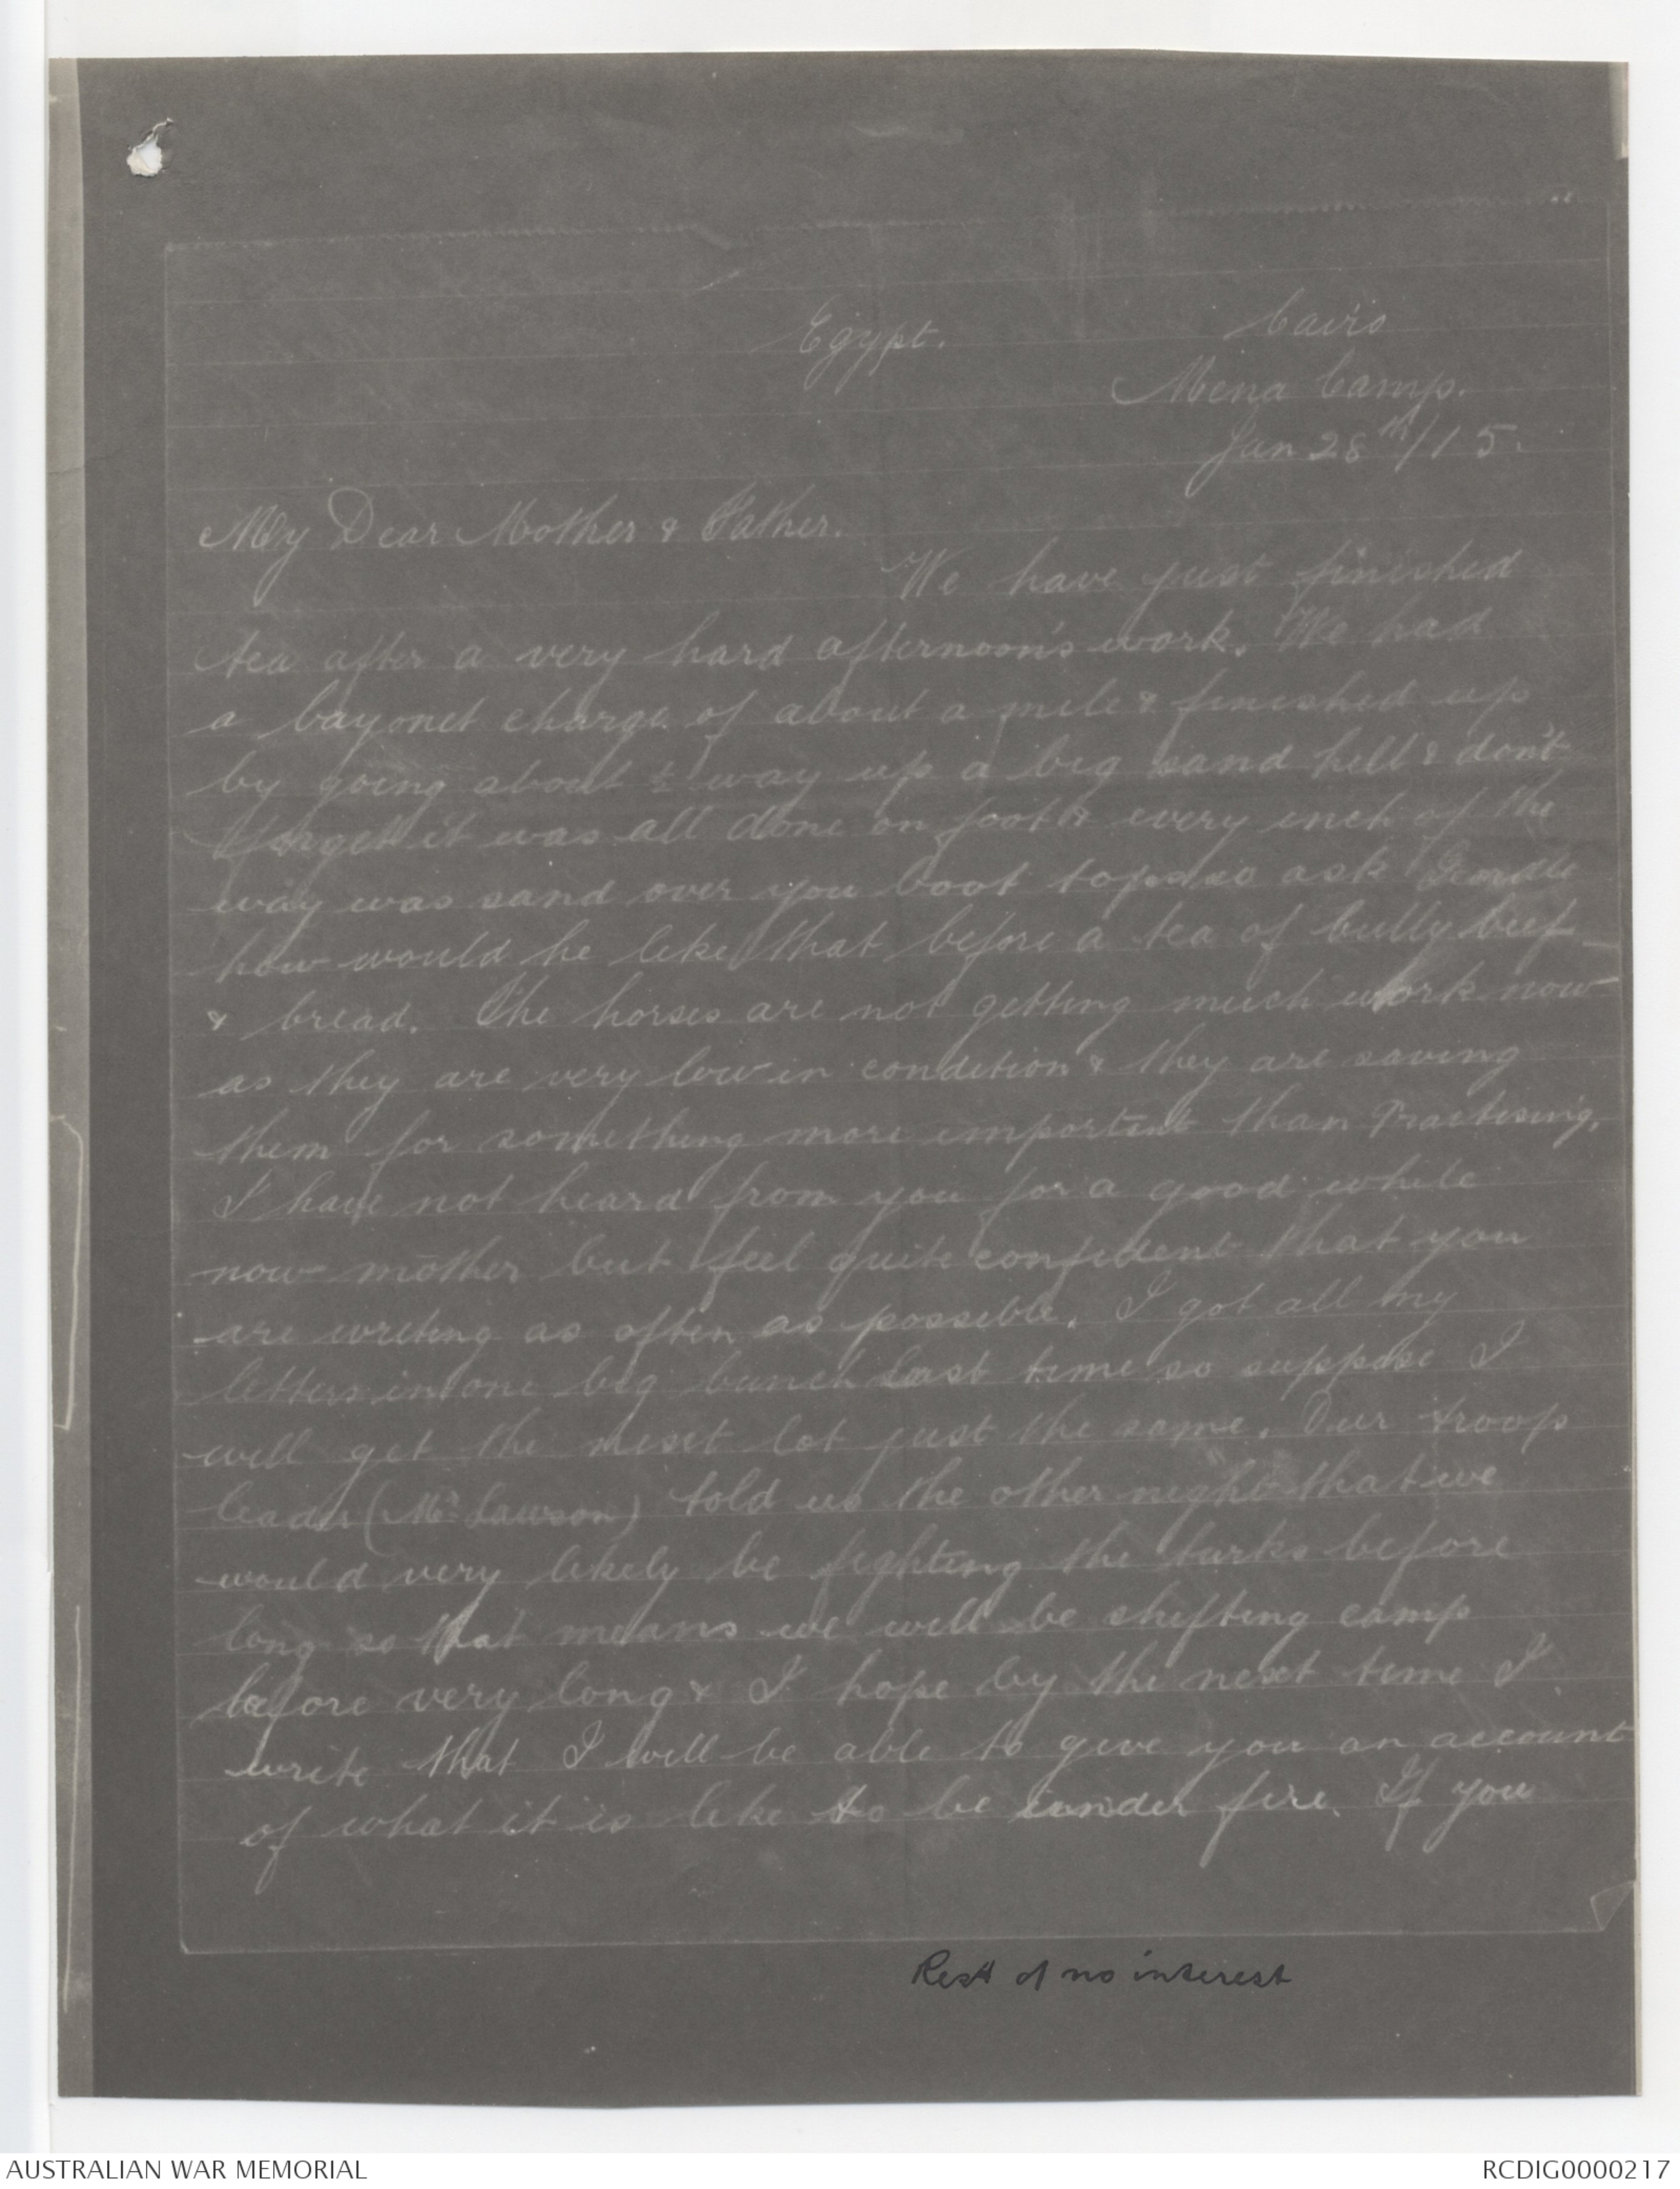 Egypt. Cairo
Mena Camp.
Jan 28th/15.
My Dear Mother & Father.
We have just finished
tea after a very hard afternoon's work. We had
a bayonet charge of about a mile & finished up
by going about ½ way up a big sand hill & don't
forget it was all done on foot & every inch of the
way was sand over you boot tops so ask
how would he like that before a tea of bully beef
& bread. The horses are not getting much work now
as they are very low in condition & they are saving
them for something more important than Practising.
I have not heard from you for a good while
now mother but feel quite confident that you
are writing as often as possible. I got all my
letters in one big bunch last time so suppose I
will get the next lot just the same. Our troop
leader (Mr Lawson) told us the other night that we
would very likely be fighting the turks before
long so that means we will be shifting camp
before very long & I hope by the next time I
write that I will be able to give you an account
of what it is like to be under fire. If you
Rest of no interest
AUSTRALIAN WAR MEMORIAL RCDIG0000217